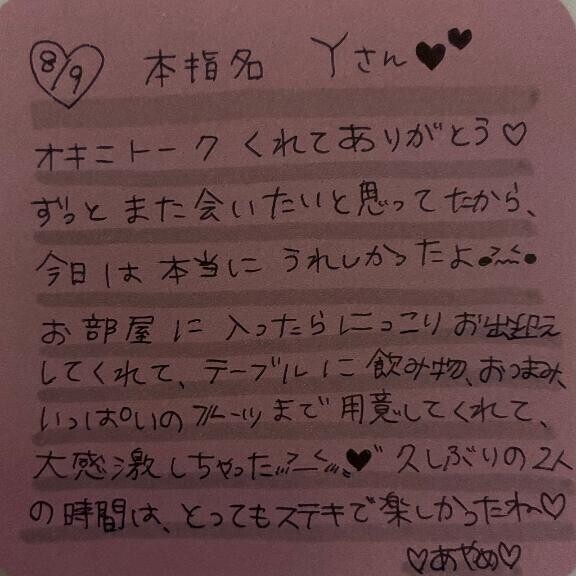 8/9 本指名 Yさん♥♥
オキニトーク くれてありがとう♡
ずっと また会いたいと思ってたから、
今日は本当に うれしかったよ
お部屋に入ったらにっこりお出迎え
してくれて、テーブルに飲み物、おつまみ、
いっぱいのフルーツまで用意してくれて、
大感激しちゃった♥ 久しぶりの2人
の時間は、とってもステキで楽しかったね♡
♡あやめ♡